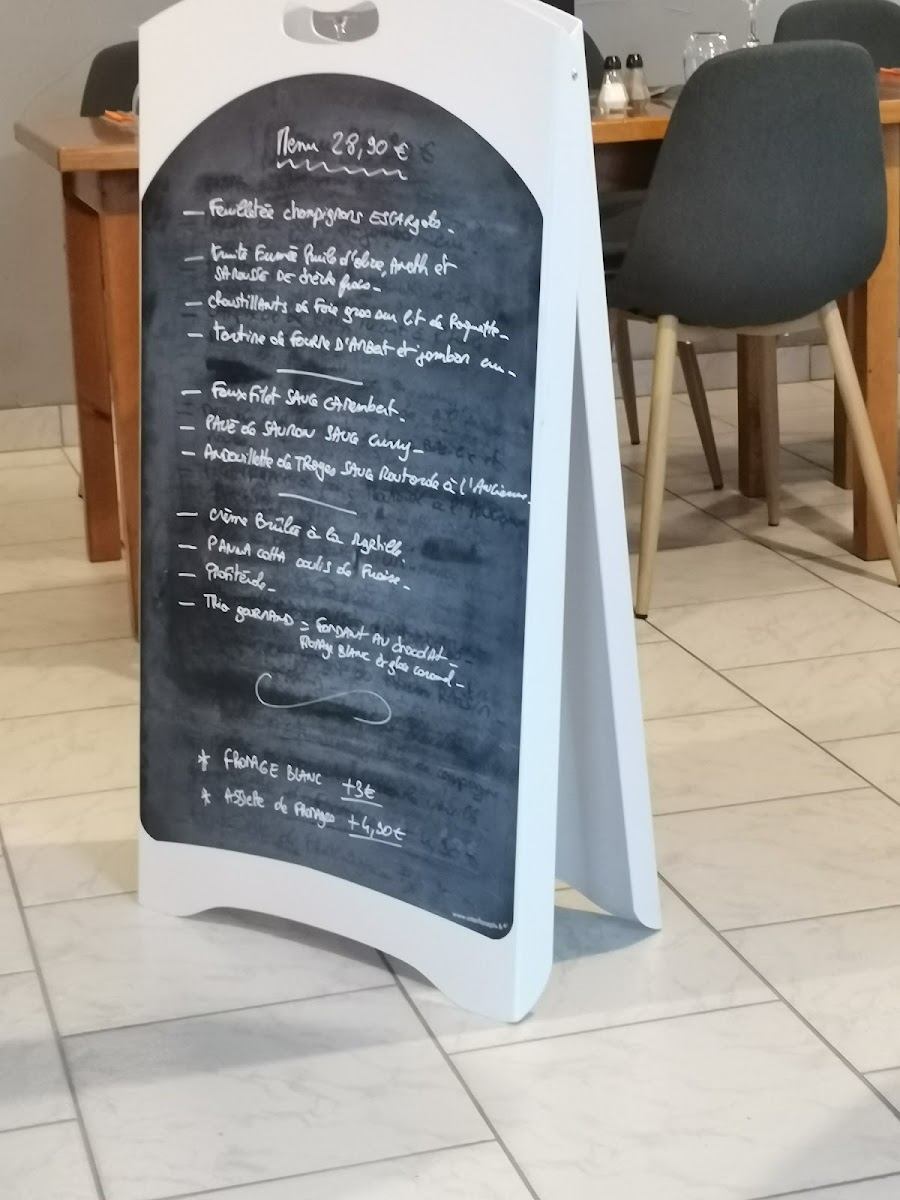 Menu 28,90 €
— Feuilletée champignons ESCARgots -
— truite Fumée huile d'olive, Aneth et
de chèvre frais -
— Croustillants de Foie gras sur lit de Roquette -
— tartine de Fourme D'Ambert et jambon cru -
— Faux Filet SAUCE CAMembert -
— PAVE de SAUMON SAUCE Curry -
— Andouillette de Troyes SAUCE Moutarde à l'Ancienne -
— Crème Brûlée à la Myrtille
— PANNA cotta coulis de Fraise -
— Profiterole -
— Trio gourmand = FONDANT AU chocolat -
FROMAGE BLANC et glace caramel -
* FROMAGE BLANC +3€
* Assiette de FROMAGES +4,90€